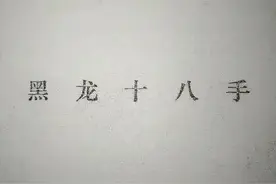 黑龙十八手